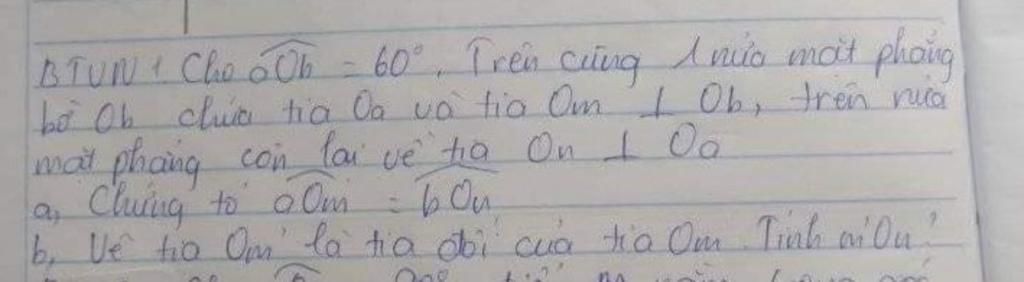 BTVN1 Cho aOb = 60°. Trên cùng 1 nửa mặt phẳng
bờ Ob chứa tia Oa vẽ tia Om ⊥ Ob, trên nửa
mặt phẳng còn lại vẽ tia On ⊥ Oa
a, Chứng tỏ aOm = bOn
b, Vẽ tia Om' là tia đối của tia Om. Tính m'On?